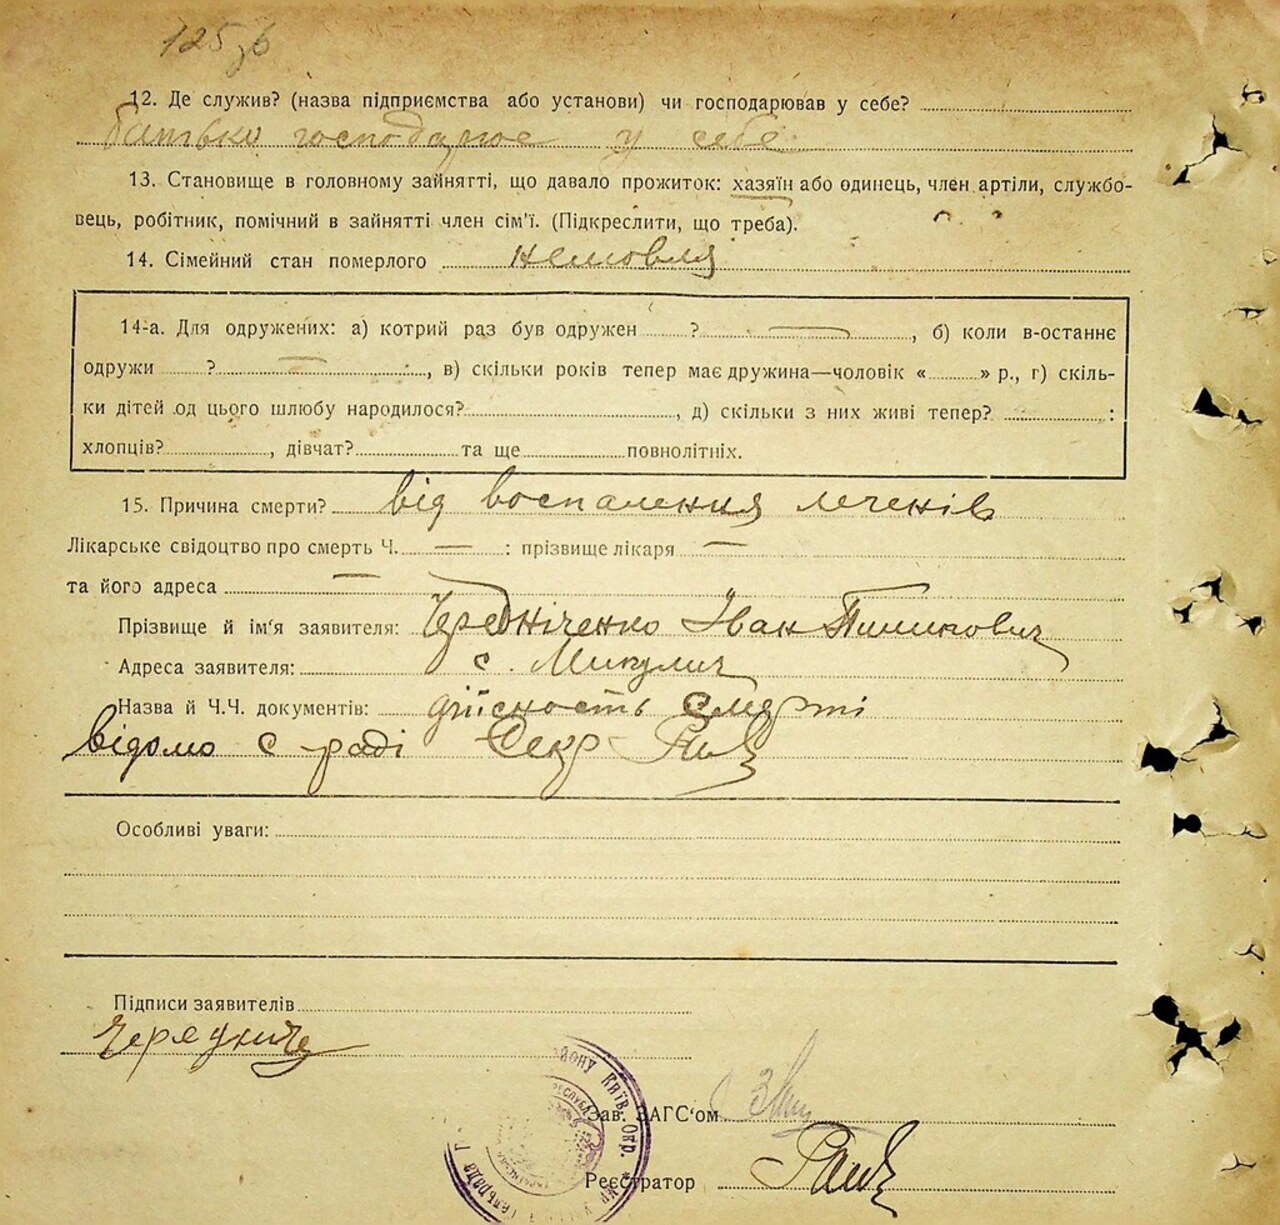 125 зв
12. Де служив? (назва підприємства або установи) чи господарював у себе?
батько господарює у себе
13. Становище в головному зайнятті, що давало прожиток: хазяїн або одинець, член артіли, службо-
вець, робітник, помічний в зайнятті член сім'ї. (Підкреслити, що треба).
14. Сімейний стан померлого немовля
14-а. Для одружених: а) котрий раз був одружен ? — , б) коли в-останнє
одружи ? — , в) скільки років тепер має дружина—чоловік « » р., г) скіль-
ки дітей од цього шлюбу народилося? , д) скільки з них живі тепер? :
хлопців? , дівчат? та ще повнолітніх.
15. Причина смерти? від воспаления леченів
Лікарське свідоцтво про смерть Ч. — : прізвище лікаря —
та його адреса —
Прізвище й ім'я заявителя: Чередніченко Іван
Адреса заявителя: с. Микулич
Назва й Ч.Ч. документів: дійсность смерті
відомо с-раді Секр
Особливі уваги:
Підписи заявителів
Зав. ЗАГС'ом
Реєстратор
району Київ. Окр.